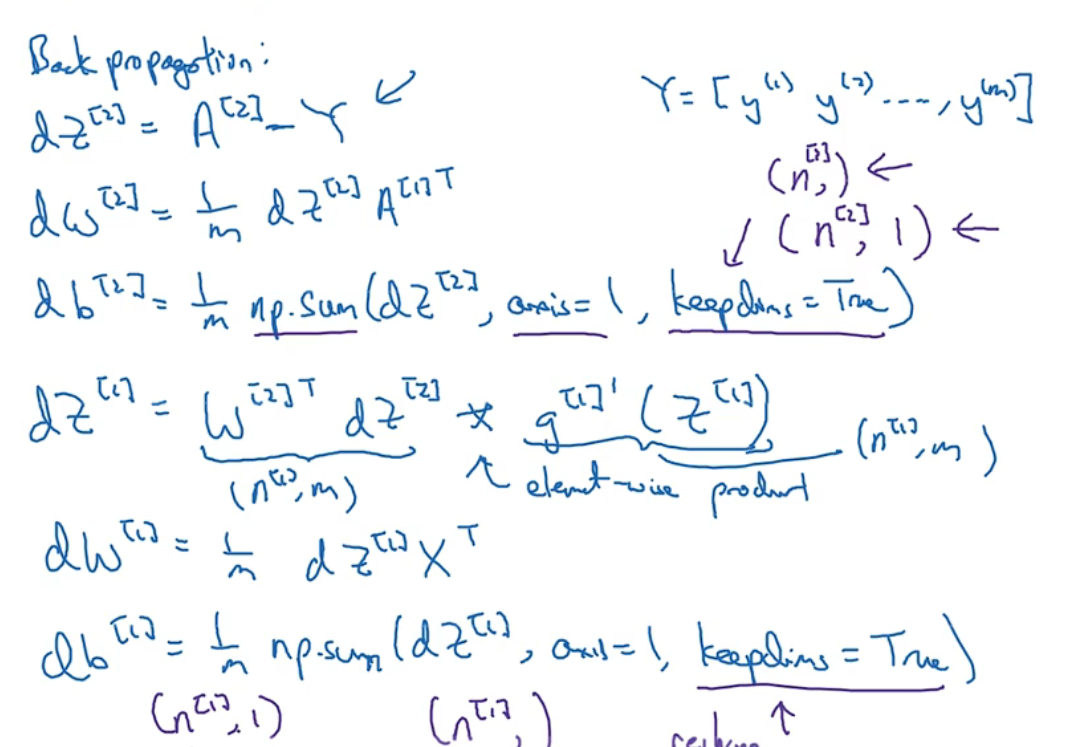 Back propagation:
dZ^[2] = A^[2] - Y ↙
Y = [y^(1) y^(2) ...., y^(m)]
dW^[2] = 1/m dZ^[2] A^[1]T
(n^[2],) ←
↙ (n^[2], 1) ←
db^[2] = 1/m np.sum(dZ^[2], axis=1, keepdims=True)
dZ^[1] = W^[2]T dZ^[2] * g^[1]'(Z^[1])
(n^[1], m) ↖ element-wise product (n^[1], m)
dW^[1] = 1/m dZ^[1] X^T
db^[1] = 1/m np.sum(dZ^[1], axis=1, keepdims=True)
(n^[1], 1) (n^[1],) ↑